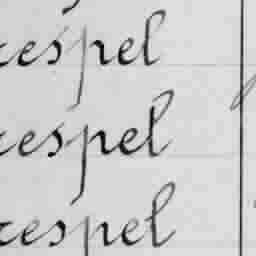 respel
respel
respel